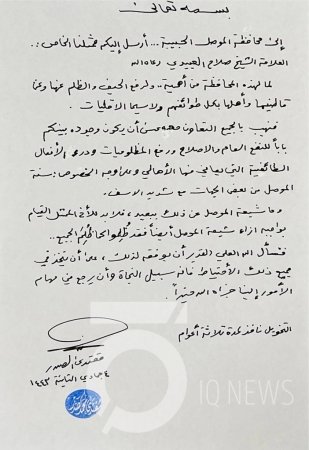 بسمه تعالى
إلى محافظة الموصل الحبيبة... أرسل إليكم ممثلنا الخاص:.
العلامة الشيخ صلاح العبيدي رعاه الله
لما لهذه المحافظة من أهمية.. ولرفع الحيف والظلم عنها وعن
وأهلها بكل طوائفهم ولاسيما الاقليات.
فنهيب بالجميع التعاون معه عسى أن يكون وجوده بينكم
باباً للنفع العام والإصلاح ورفع المظلوميات ودرء الأفعال
الطائفية التي يعاني منها الأهالي وعلى وجه الخصوص: سنة
الموصل من بعض الجهات مع شديد الاسف.
وما شيعة الموصل عن ذلك ببعيد، فلا بد للأخ الممثل القيام
بواجبه ازاء شيعة الموصل أيضاً فقد ظُلموا الجميع..
فنسأل الله العلي القدير أن يوفقه لذلك، على أن يتخذ في
جميع ذلك الاحتياط فإنه سبيل النجاة وأن يرجع في مهام
الأمور إلينا جزاه الله خيراً.
التخويل نافذ لمدة ثلاثة أعوام
مقتدى الصدر
٤ جمادي الثانية ١٤٤٣
IQ NEWS